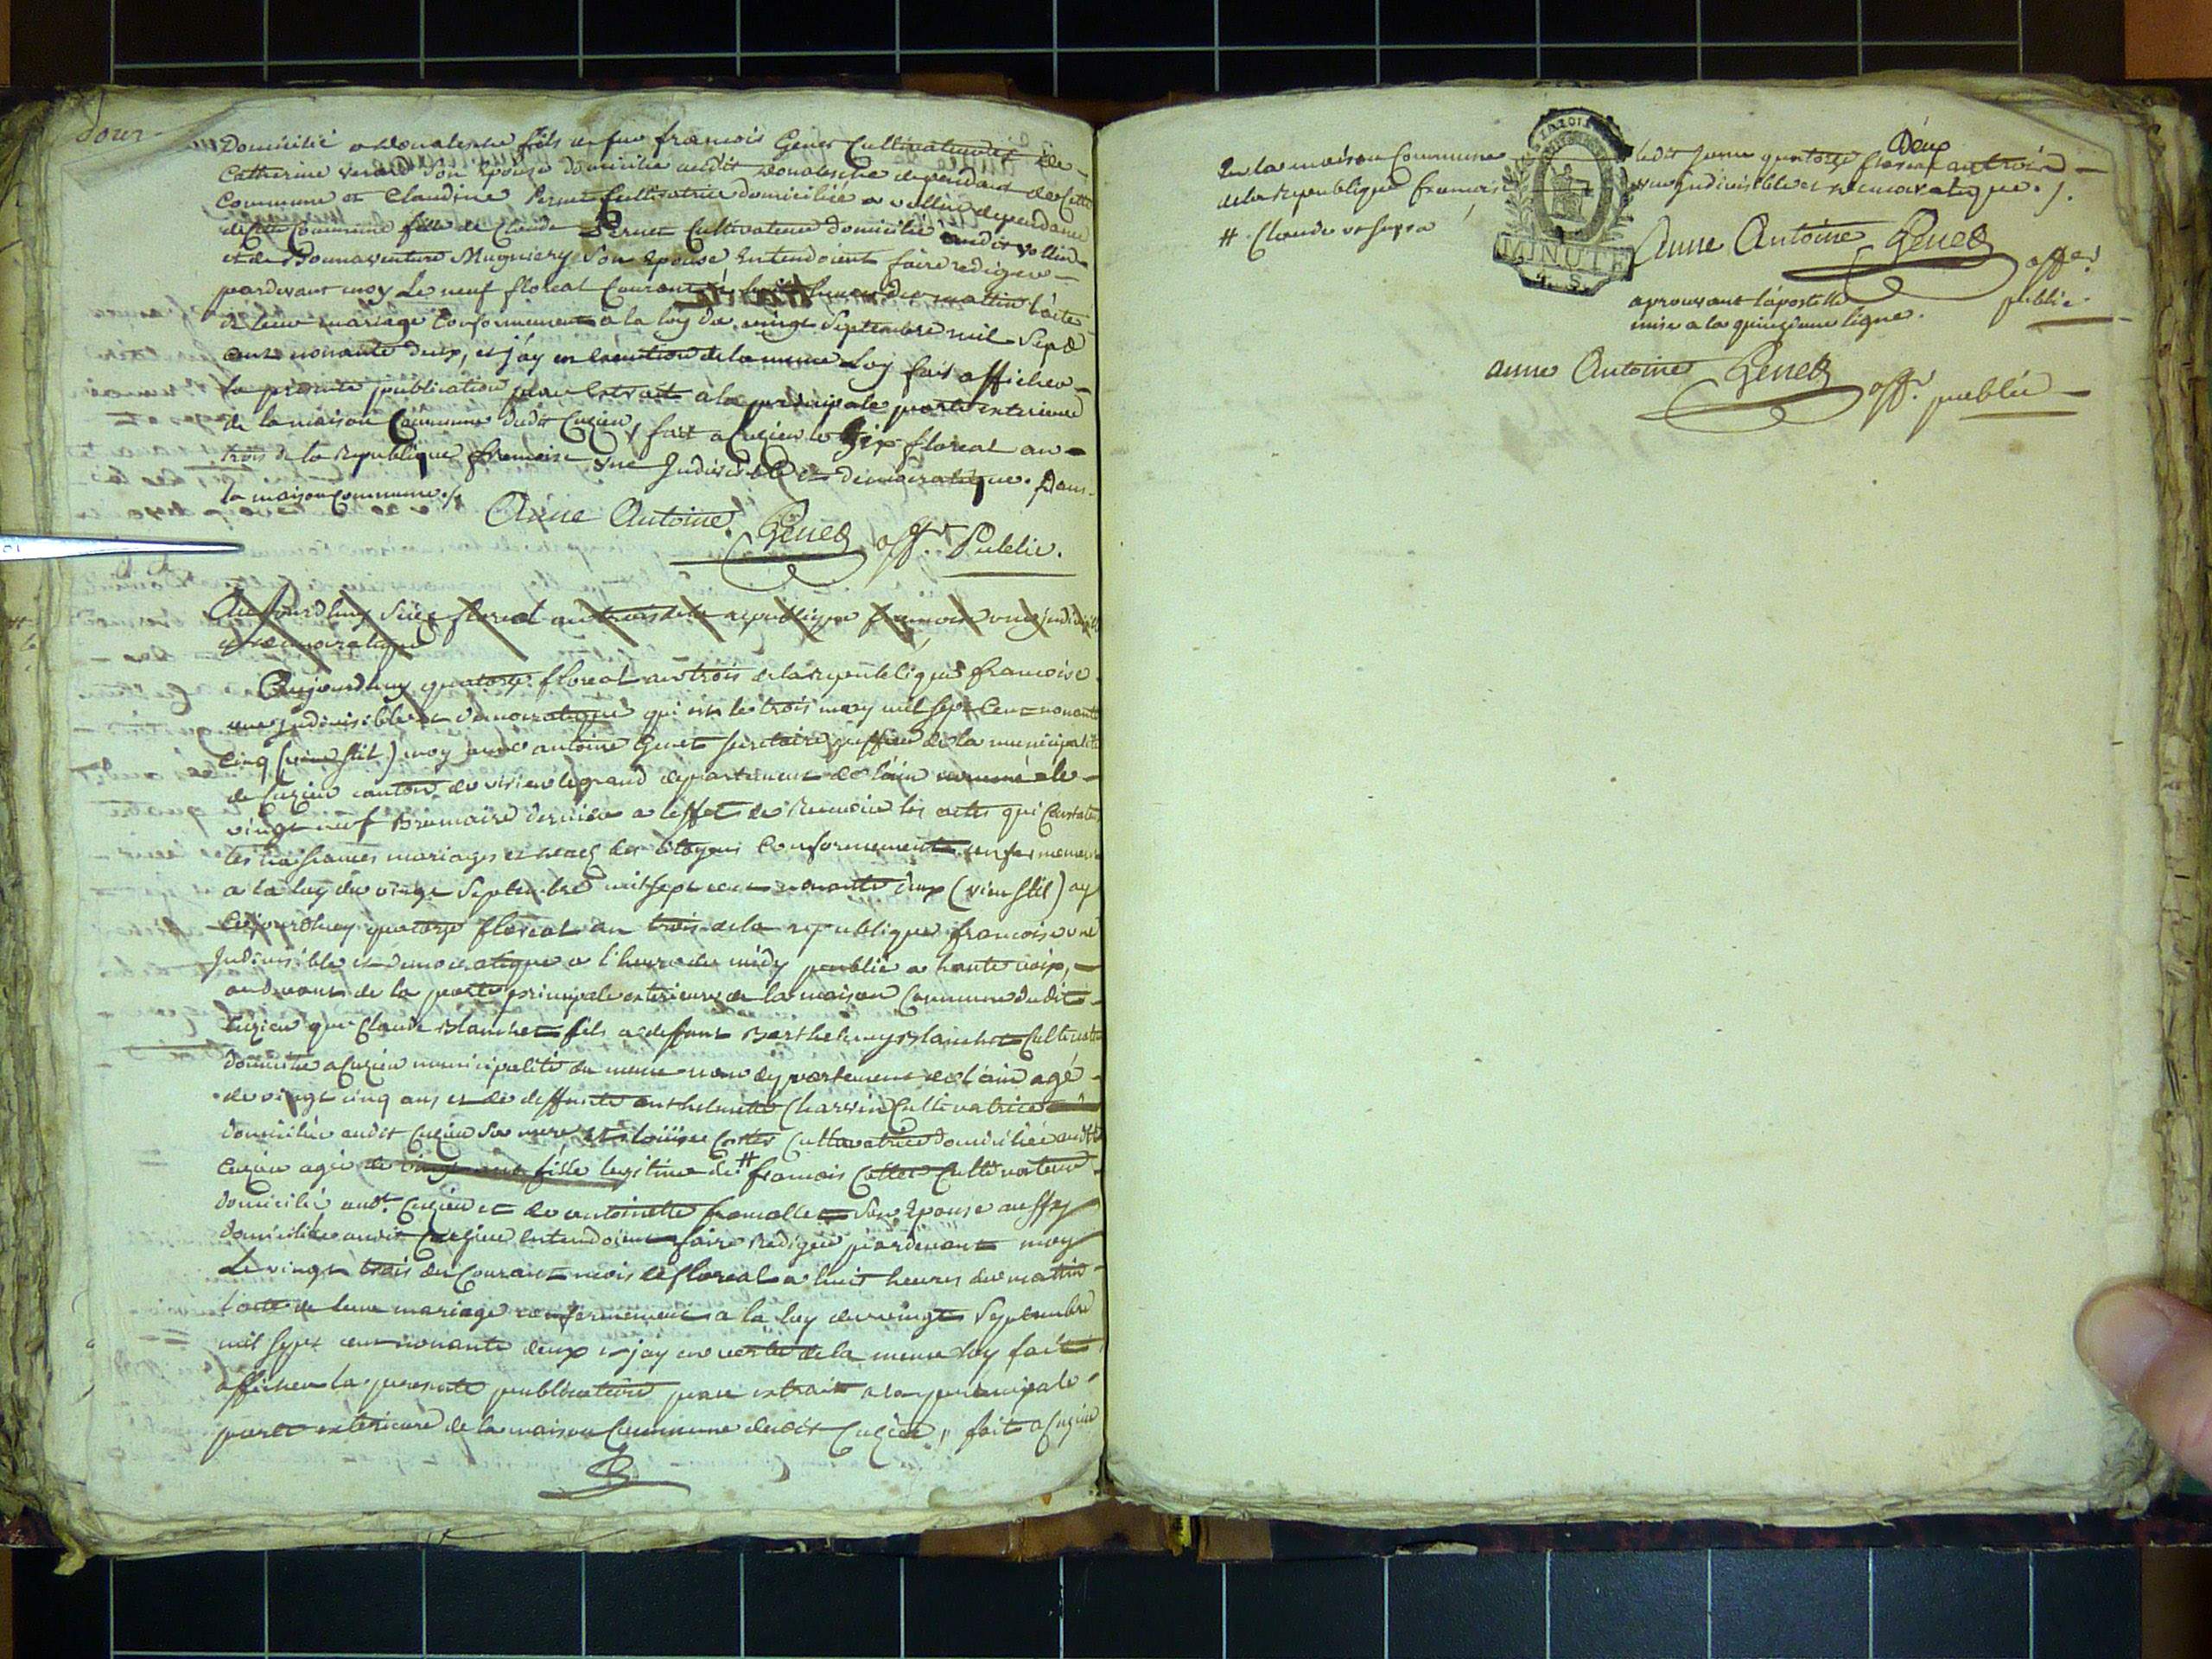 Domicilié a fils de feu francois Genet Cultivateur et de
Catherine son Epouse domicilie audit dependant de Cette
Commune et Claudine Pernet Cultivatrice domiciliée a vollien dependance
de Cette Commune fille de Claude Pernet Cultivateur domicilié audit vollien
et de Bonnaventure Mugniery son Epouse Entendoient faire rediger
pardevant moy Le neuf floreal Courant a huit heures du mattin l'acte
de leur mariage Conformement a la loy du vingt Septembre mil Sept
cent nonante deux, et j'ay en Execution de la meme Loy fait afficher
la presente publication par Extrait a la principale porte exterieure
de la maison Commune dudit Cuzieu, fait a Cuzieu le Six floreal an
trois de la Republique francoise une Indivisible et democratique. Dans
la maison Commune ./.
Anne Antoine Genet offr. Public.
Aujourdhuy floreal an trois de la republique francoise une indivisible
et democratique
Aujourdhuy quatorze floreal an trois de la republique francoise
une jndivisible et democratique qui est le trois may mil sept Cent nonante
Cinq (vieux stil) moy anne antoine Genet secretaire greffier de la municipalité
de Cuzieu canton de virieu le grand departement de l'ain nommé le
vingt neuf Brumaire dernier a leffet de Recevoir les actes qui Constatent
les naissances mariages et deces des Citoyens Conformement
a la loy du vingt Septembre mil sept cent nonante deux (vieu stil) ay
Cejourdhuy quatorze floreal an trois de la republique francoise une
Indivisible et democratique a l'heure de midy publié a haute voix,
audevant de la porte principale exterieure de la maison Commune dudit
Cuzieu que Claude Blanchet fils de deffunt Barthelemy Blanchet Cultivateur
domicilié a Cuzieu municipalité du meme nom departement de l'ain agé
de vingt cinq ans et de deffunte anthelmette Charvin Cultivatrice
domiciliée audit Cuzieu Sa mere, et loüise Cottet Cultivatrice domiciliée audit
Cuzieu agée de vingt une fille legitime de # francois Cottet Cultivateur
domicilié aud.t Cuzieu et de antoinette francallet Son Epouse aussy
domiciliée audit Cuzieu Entendoient faire Rediger pardevant moy
Le vingt trois du Courant mois de floreal a huit heures du mattin
l'acte de leur mariage conformement a la loy du vingt Septembre
mil sept cent nonante deux et jay en vertu de la meme loy fait
afficher la presente publication par extrait a la principale
porte exterieure de la maison Commune dudit Cuzieu, fait a Cuzieu
En la maison Commune ledit jour quatorze floreal an trois
Deux
de la Republique francoise une jndivisible et democratique ./.
# Claude
MINUTE
Anne Antoine Genet offer.
public.
aprouvant l'apostille
mise a la quinzieme ligne.
anne Antoine Genet offr. public